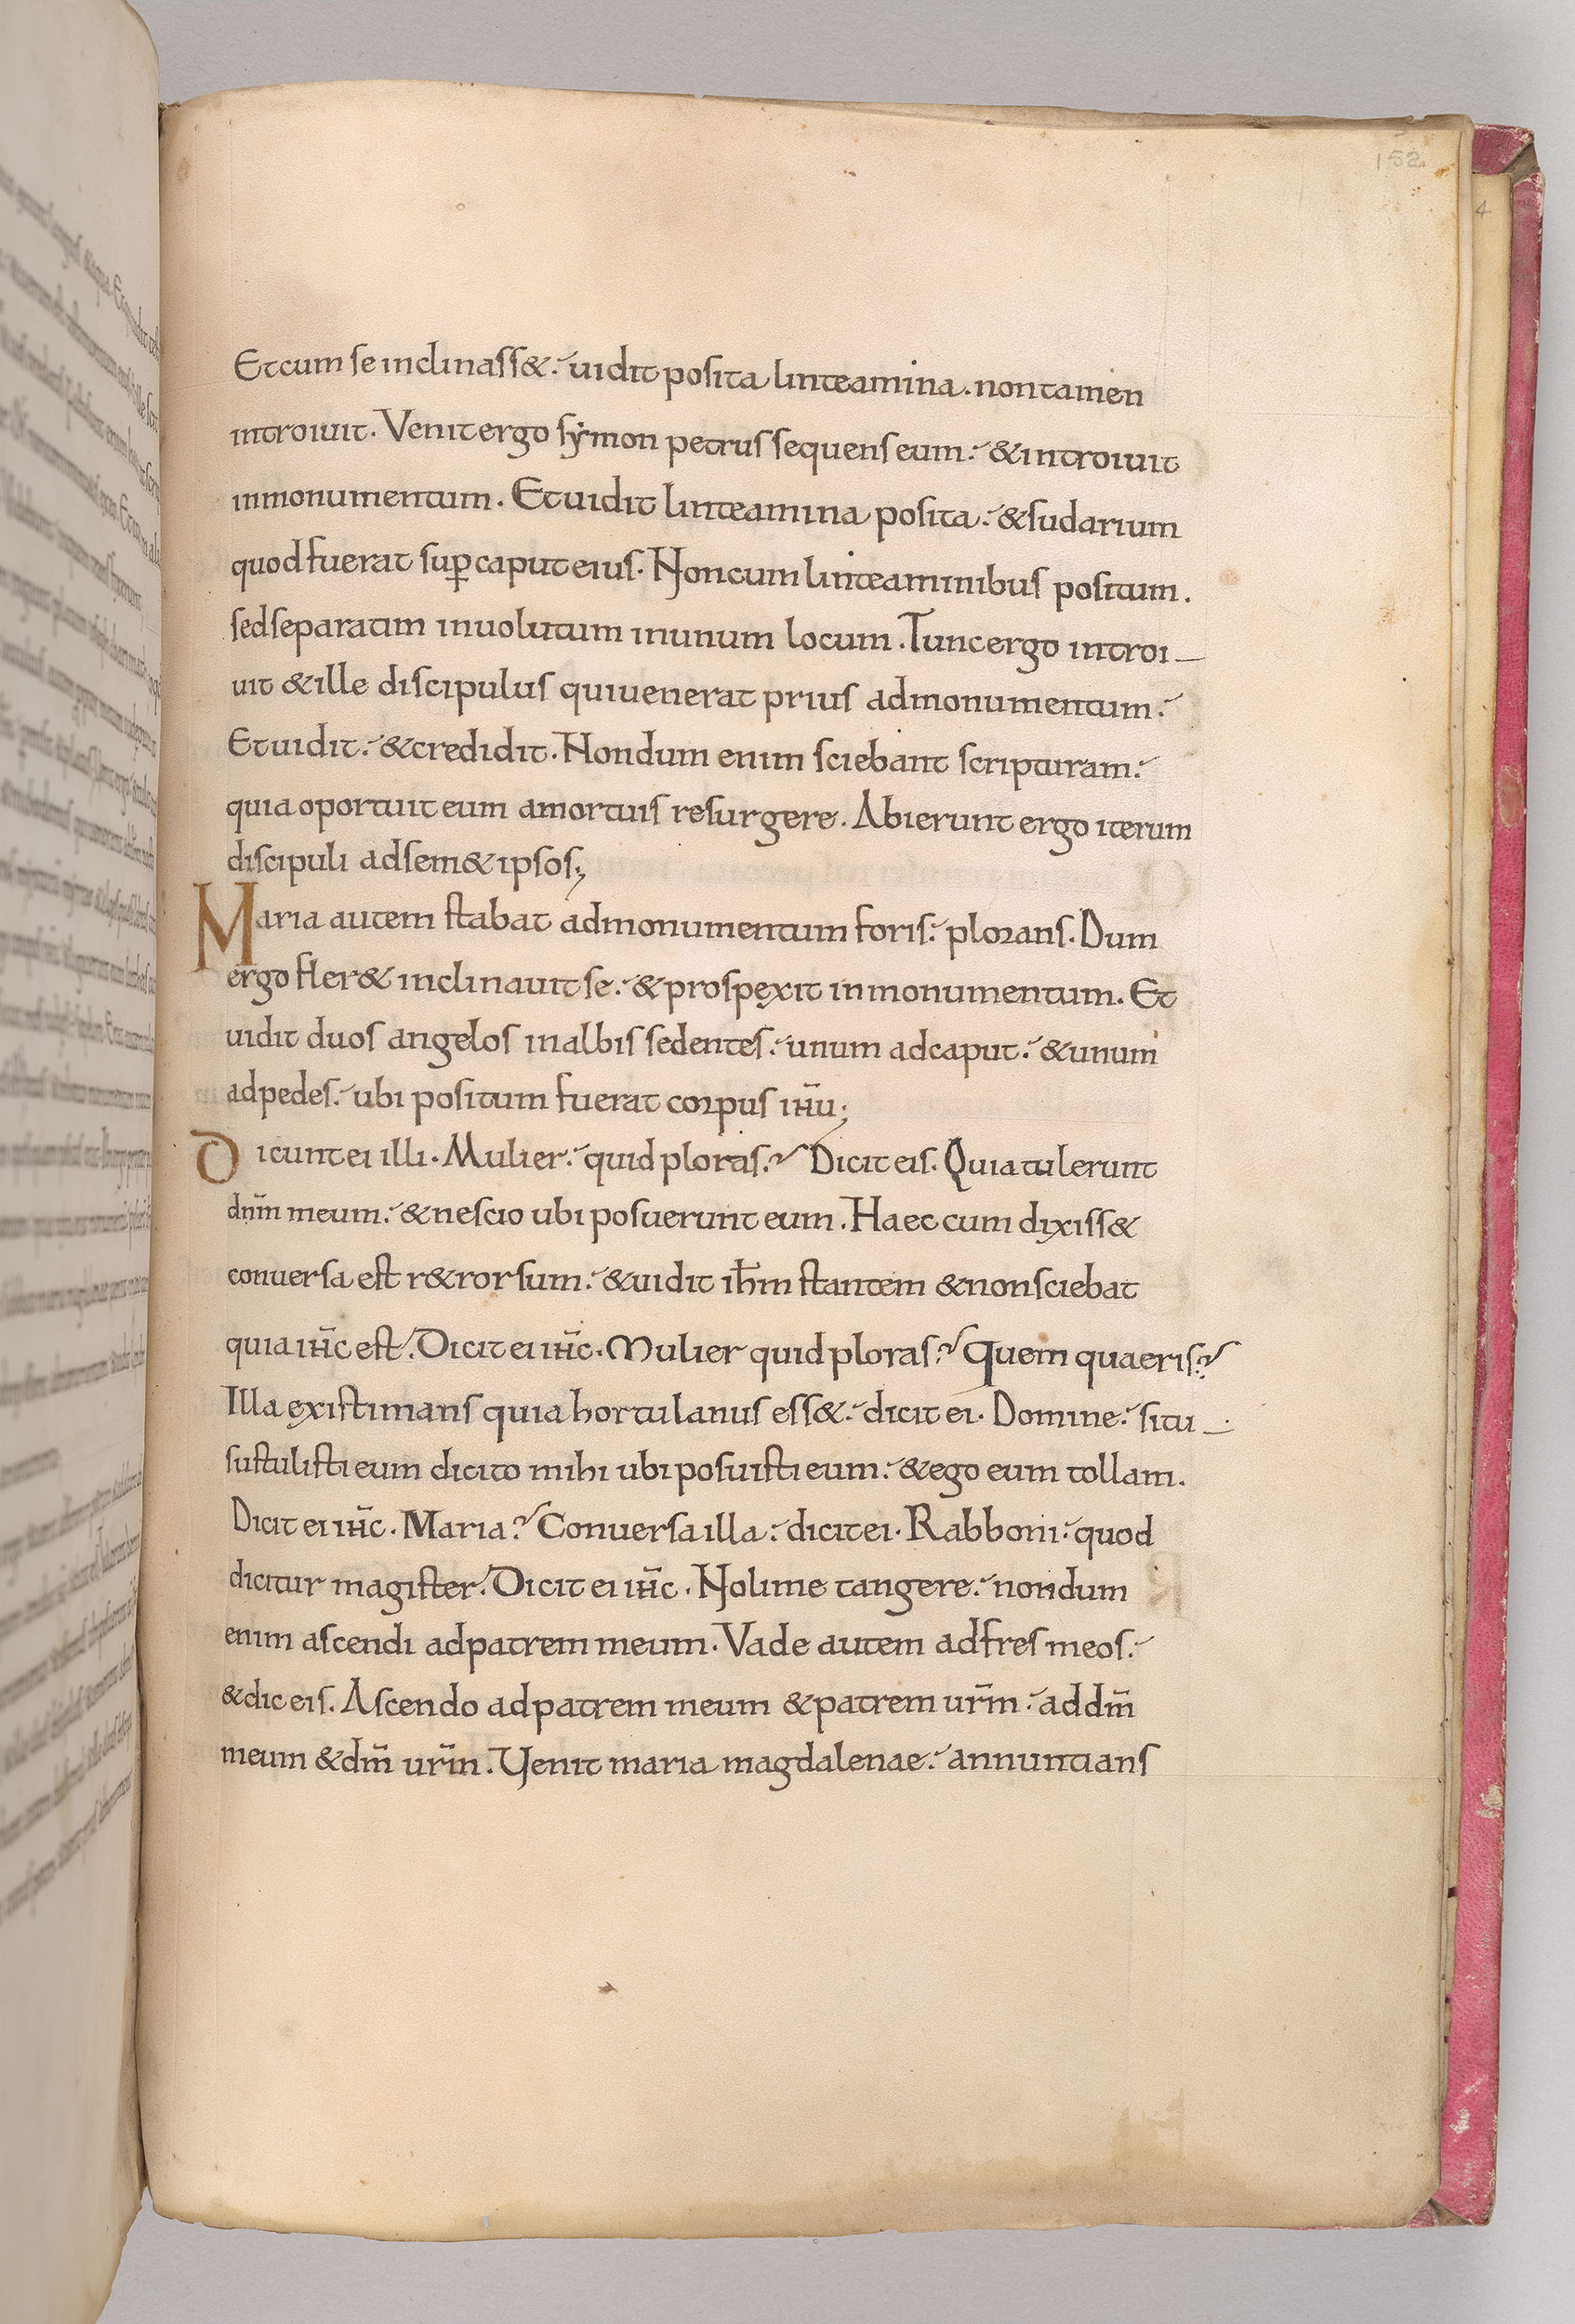 152
4
Et cum se inclinass&. uidit posita linteamina. non tamen
introiuit. Venit ergo symon petrus sequens eum. & introiuit
in monumentum. Et uidit linteamina posita. & sudarium
quod fuerat sup̄ caput eius. Non cum linteaminibus positum.
sed separatim inuolutum in unum locum. Tunc ergo introi_
uit & ille discipulus qui uenerat prius ad monumentum.
Et uidit. & credidit. Nondum enim sciebant scripturam.
quia oportuit eum a mortuis resurgere. Abierunt ergo iterum
discipuli ad sem& ipsos;
Maria autem stabat ad monumentum foris. plorans. Dum
ergo fler& inclinauit se. & prospexit in monumentum. Et
uidit duos angelos in albis sedentes. unum ad caput. & unum
ad pedes. ubi positum fuerat corpus ih̄u;
Dicunt ei illi. Mulier. quid ploras? Dicit eis. Quia tulerunt
dnm̄ meum. & nescio ubi posuerunt eum. Haec cum dixiss&
conuersa est r&rorsum. & uidit ih̄m stantem & non sciebat
quia ih̄c est. Dicit ei ih̄c. Mulier quid ploras? Quem quaeris?
Illa ęxistimans quia hortulanus ess&. dicit ei. Domine. si tu_
sustulisti eum dicito mihi ubi posuisti eum. & ego eum tollam.
Dicit ei ih̄c. Maria? Conuersa illa. dicit ei. Rabboni. quod
dicitur magister. Dicit ei ih̄c. Noli me tangere. nondum
enim ascendi ad patrem meum. Vade autem ad fres meos.
& dic eis. Ascendo ad patrem meum & patrem ur̄m. ad dm̄
meum & dm̄ ur̄m. Venit maria magdalenae. annuntians